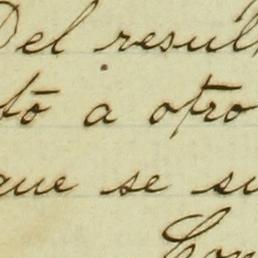 Del resul
to a otro
que se su
Con